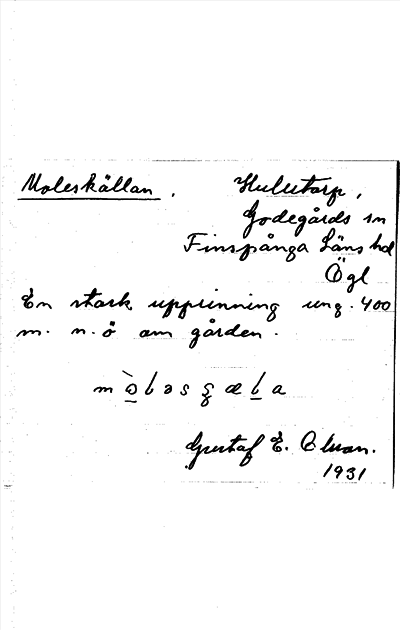 Moleskällan. Hulutorp,
Godegårds sn
Finspånga Läns hd
Ögl
En stark upprinning ung. 400
m. n.ö om gården.
Gustaf E.
1931